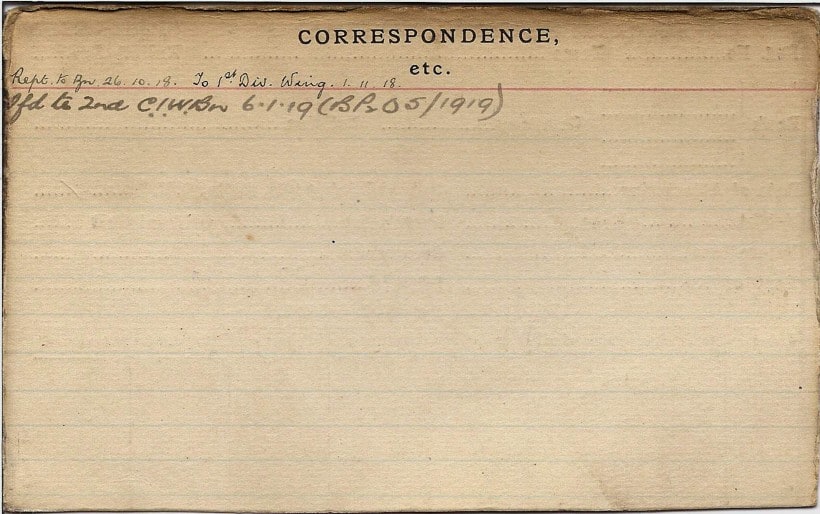 CORRESPONDENCE,
etc.
Rept. to Bn. 26.10.18. To 1st Div. Wing. 1.11.18.
Tfd to 2nd C.I.W.Bn 6.1.19 (B Pt 2 O 5/1919)